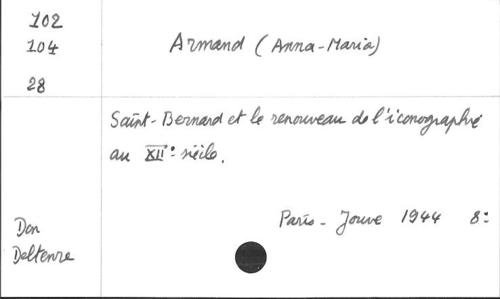 102
104
28
Armand (Anna-Maria)
Saint-Bernard et le renouveau de l'iconographie
au XIIe siècle.
Paris - Jouve 1944 8°
Don
Deltenre